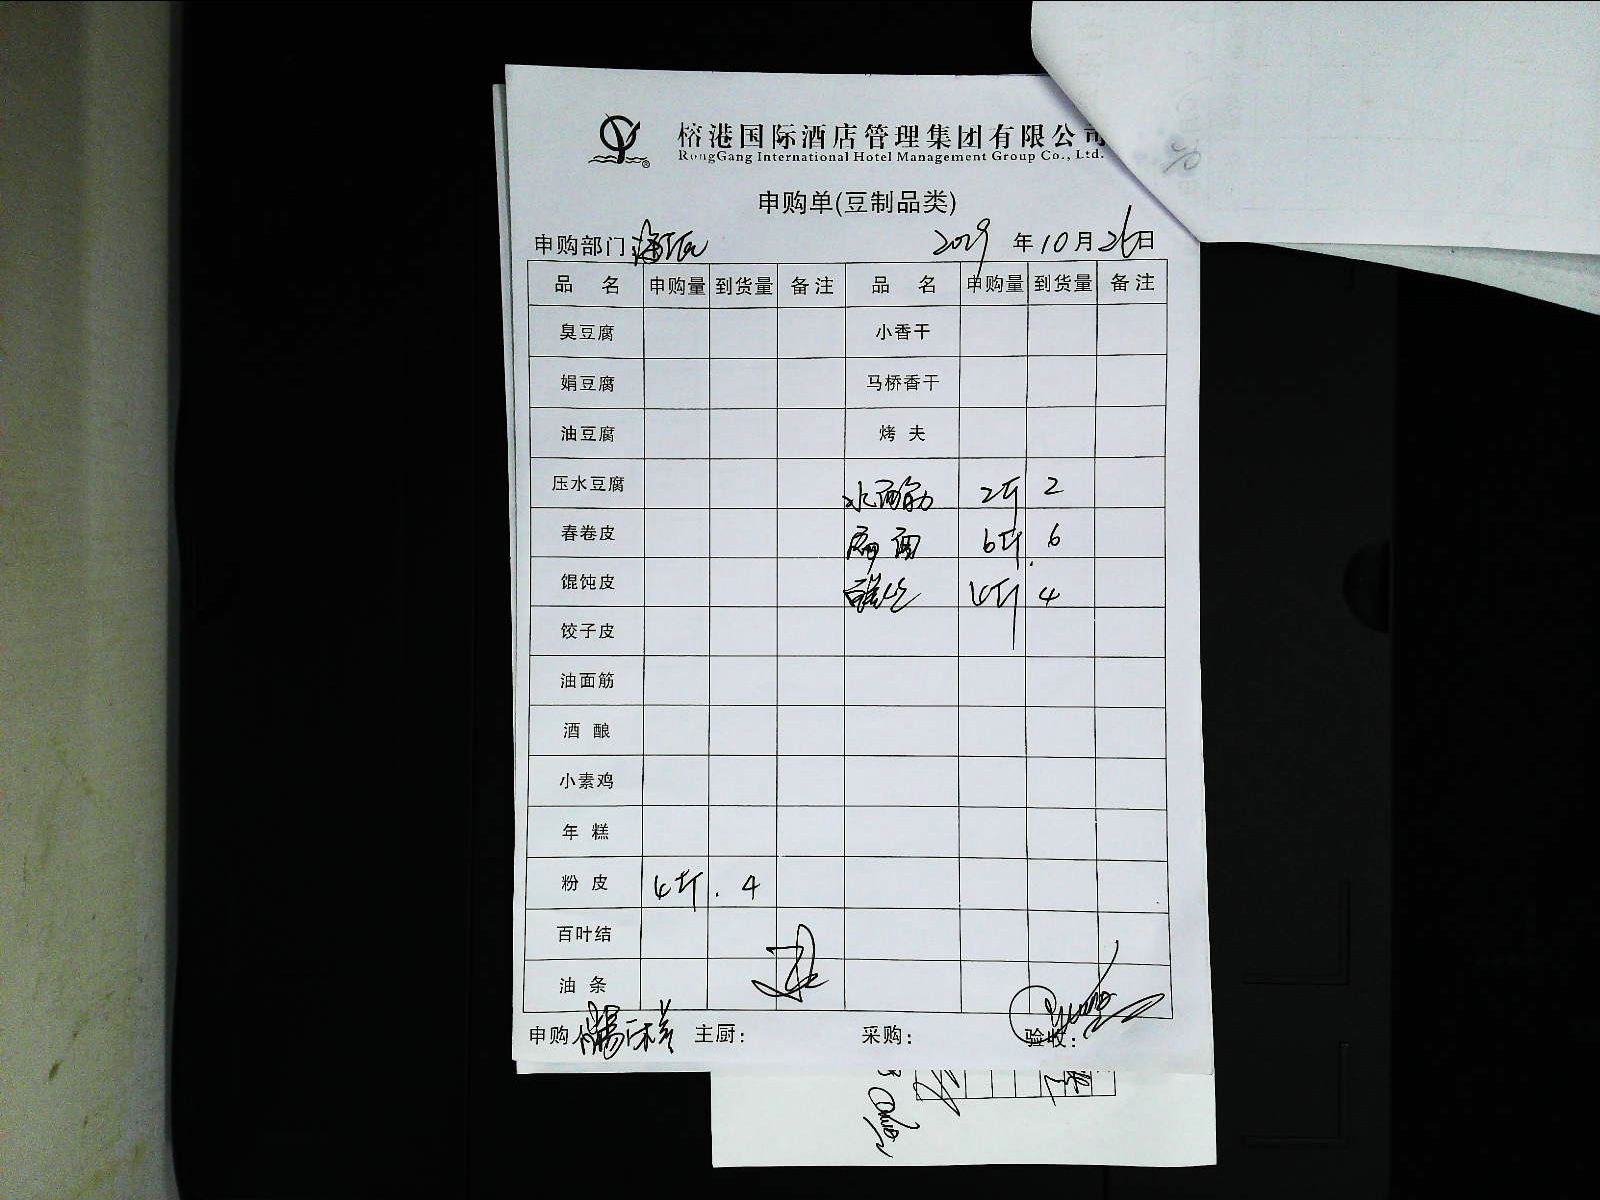 榕港国际酒店管理集团有限公司
RongGang International Hotel Management Group Co., Ltd.
申购单(豆制品类)
申购部门 2029 年 10 月 26 日
品 名 申购量 到货量 备注 品 名 申购量 到货量 备注
臭豆腐 小香干
娟豆腐 马桥香干
油豆腐 烤 夫
压水豆腐 水面筋 2斤 2
春卷皮 6斤 6
馄饨皮 4斤 4
饺子皮
油面筋
酒 酿
小素鸡
年 糕
粉 皮 4斤 4
百叶结
油 条
申购 主厨: 采购: 验收: